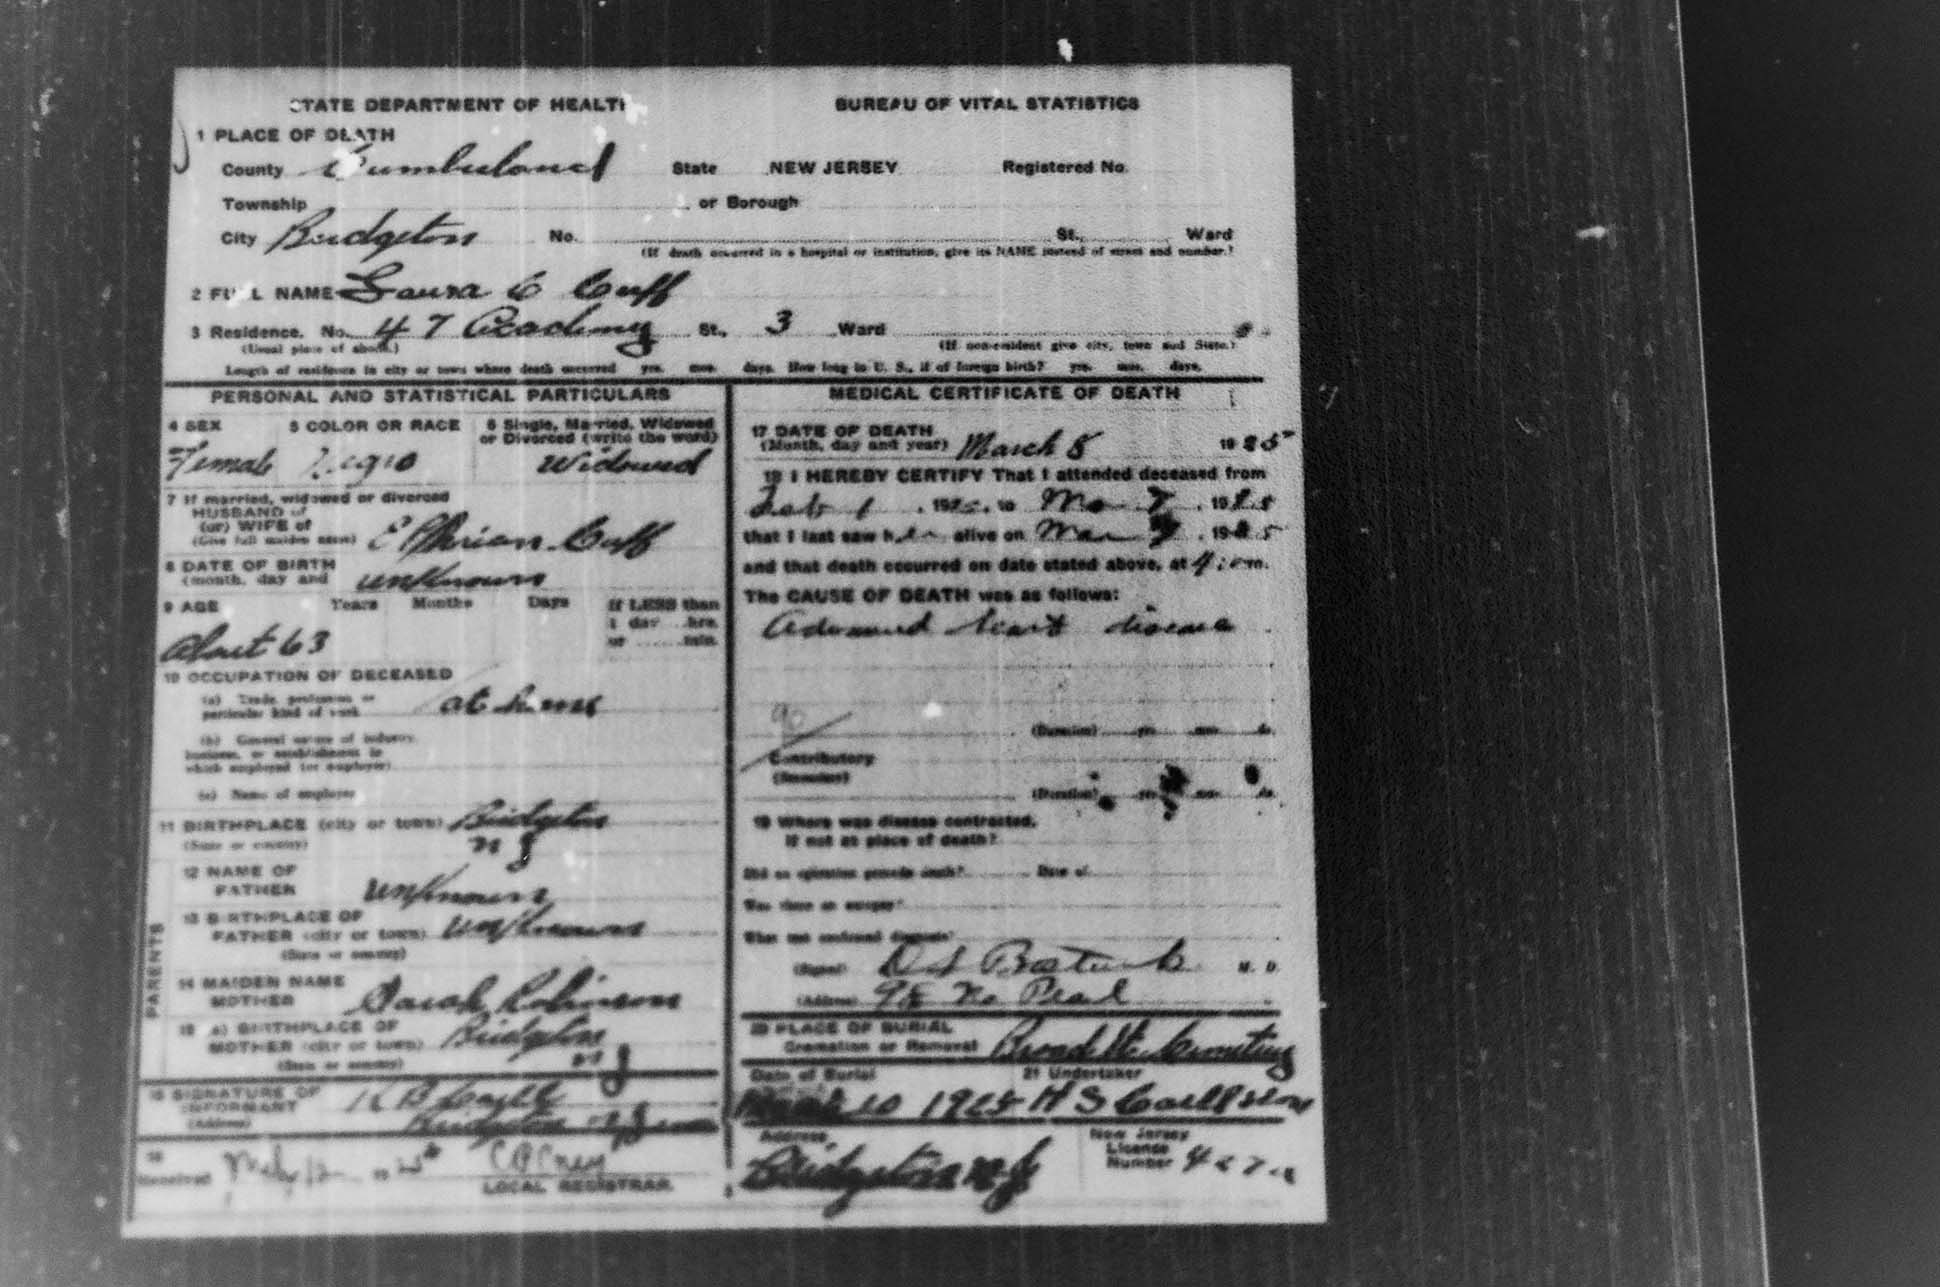 STATE DEPARTMENT OF HEALTH BUREAU OF VITAL STATISTICS
1 PLACE OF DEATH
County Cumberland State NEW JERSEY Registered No.
Township or Borough
City Bridgeton No. St., Ward
(If death occurred in a hospital or institution, give its NAME instead of street and number.)
2 FULL NAME Laura C Cuff
3 Residence. No. 47 Academy St., 3 Ward
(Usual place of abode.) (If non-resident give city, town and State.)
Length of residence in city or town where death occurred yrs. mos. days. How long in U. S., if of foreign birth? yrs. mos. days.
PERSONAL AND STATISTICAL PARTICULARS
4 SEX 5 COLOR OR RACE 6 Single, Married, Widowed
or Divorced (write the word)
Female Negro Widowed
7 If married, widowed or divorced
HUSBAND of
(or) WIFE of
(Give full maiden name) Cuff
8 DATE OF BIRTH
(month, day and unknown
9 AGE Years Months Days If LESS than
1 day hrs.
or min.
About 63
10 OCCUPATION OF DECEASED
(a) Trade, profession or
particular kind of work at home
(b) General nature of industry,
business, or establishment in
which employed (or employer)
(c) Name of employer
11 BIRTHPLACE (city or town) Bridgeton
(State or country) N J
PARENTS
12 NAME OF
FATHER unknown
13 BIRTHPLACE OF
FATHER (city or town) unknown
(State or country)
14 MAIDEN NAME
MOTHER Sarah Robinson
15 (a) BIRTHPLACE OF
MOTHER (city or town) Bridgeton
(State or country) N J
16 SIGNATURE OF
INFORMANT
(Address) Bridgeton N J
Received
LOCAL REGISTRAR
MEDICAL CERTIFICATE OF DEATH
17 DATE OF DEATH
(Month, day and year) March 8 1925
18 I HEREBY CERTIFY That I attended deceased from
Feb 1, 192 to Mar 7, 1925
that I last saw her alive on Mar 7, 1925
and that death occurred on date stated above, at 4 m.
The CAUSE OF DEATH was as follows:
Advanced heart disease
90
(Duration) yrs. mos. ds.
Contributory
(Secondary)
(Duration) yrs. mos. ds.
19 Where was disease contracted,
if not at place of death?
Did an operation precede death? Date of
Was there an autopsy?
What test confirmed diagnosis?
(Signed) M. D.
(Address) 98 No Pearl
20 PLACE OF BURIAL
Cremation or Removal Broad St. Cemetery
Date of Burial 21 Undertaker
March 10 1925 H S
Address
Bridgeton N J
New Jersey
License
Number